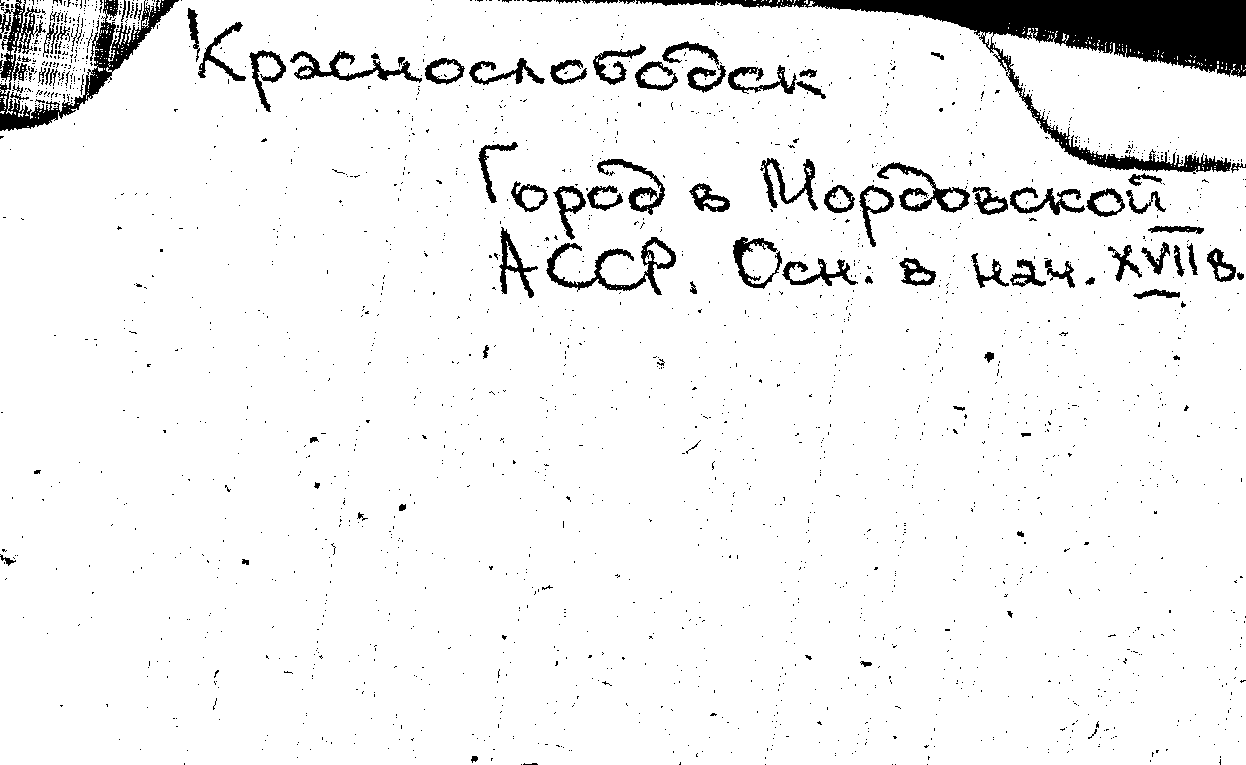 Краснослободск
Город в Мордовской
АССР. Осн. в нач. XVII в.